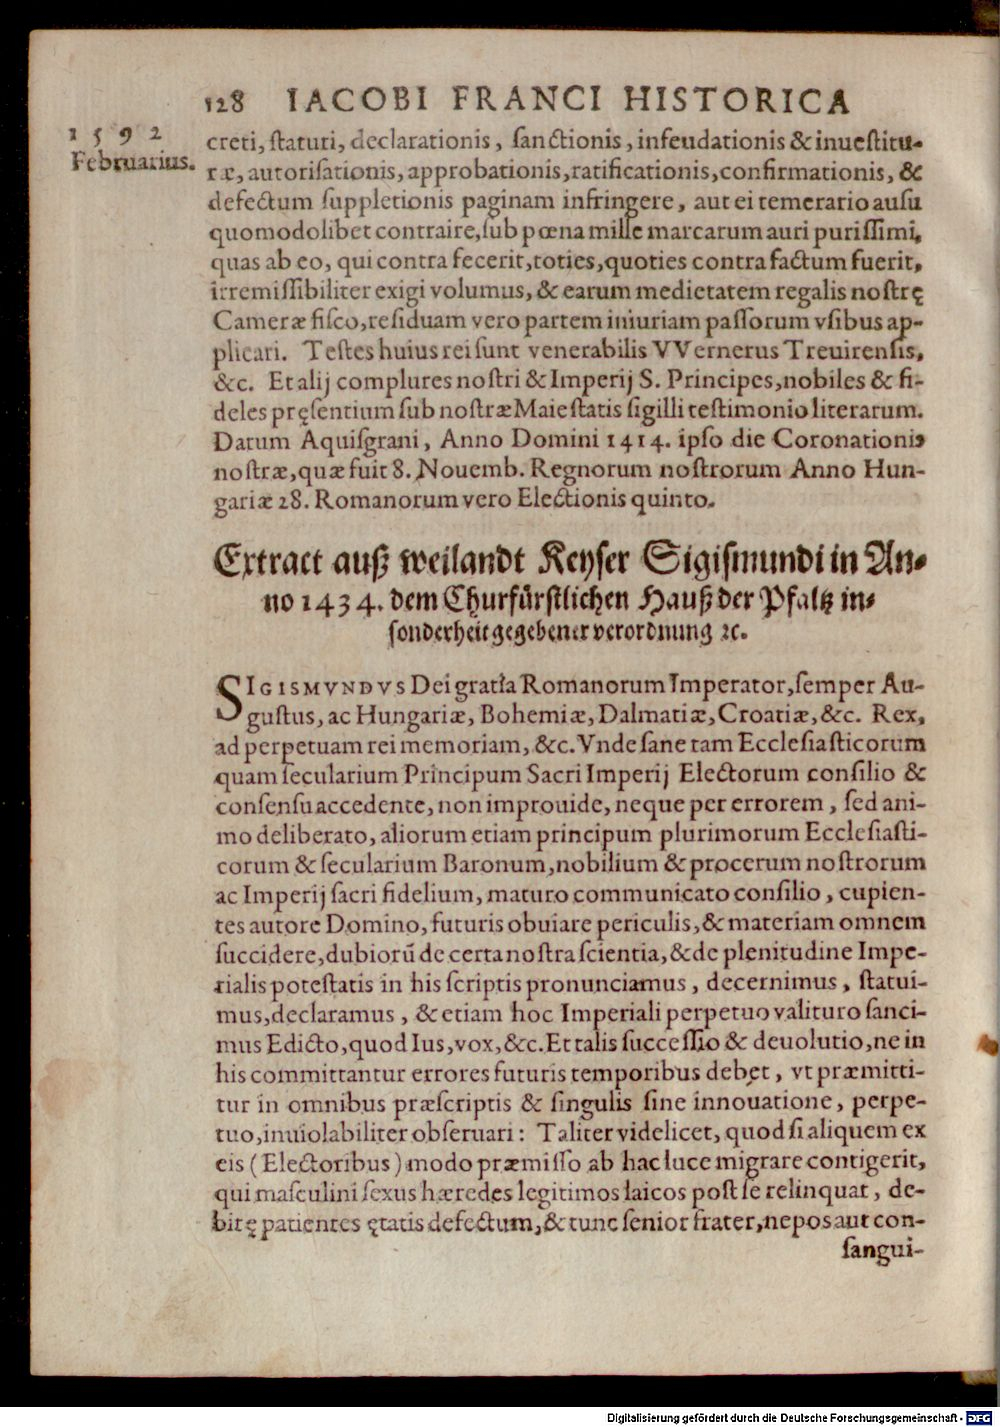 128 IACOBI FRANCI HISTORICA
1592
Februarius.
creti, ſtaturi, declarationis, ſanctionis, infeudationis & inueſtitu-
ræ, autoriſationis, approbationis, ratificationis, confirmationis, &
defectum ſuppletionis paginam infringere, aut ei temerario auſu
quomodolibet contraire, ſub pœna mille marcarum auri puriſſimi,
quas ab eo, qui contra fecerit, toties, quoties contra factum fuerit,
irremiſſibiliter exigi volumus, & earum medietatem regalis noſtrę
Cameræ fiſco, reſiduam vero partem iniuriam paſſorum vſibus ap-
plicari. Teſtes huius rei ſunt venerabilis VVernerus Treuirenſis,
&c. Et alij complures noſtri & Imperij S. Principes, nobiles & fi-
deles pręſentium ſub noſtræ Maieſtatis ſigilli teſtimonio literarum.
Datum Aquiſgrani, Anno Domini 1414. ipſo die Coronationis
noſtræ, quæ fuit 8. Nouemb. Regnorum noſtrorum Anno Hun-
gariæ 28. Romanorum vero Electionis quinto.
Extract auß weilandt Keyſer Sigiſmundi in An-
no 1434. dem Churfürſtlichen Hauß der Pfaltz in-
ſonderheit gegebener verordnung ꝛc.
SIGISMVNDVS Dei gratia Romanorum Imperator, ſemper Au-
guſtus, ac Hungariæ, Bohemiæ, Dalmatiæ, Croatiæ, &c. Rex,
ad perpetuam rei memoriam, &c. Vnde ſane tam Eccleſiaſticorum
quam ſecularium Principum Sacri Imperij Electorum conſilio &
conſenſu accedente, non improuide, neque per errorem, ſed ani-
mo deliberato, aliorum etiam principum plurimorum Eccleſiaſti-
corum & ſecularium Baronum, nobilium & procerum noſtrorum
ac Imperij ſacri fidelium, maturo communicato conſilio, cupien-
tes autore Domino, futuris obuiare periculis, & materiam omnem
ſuccidere, dubiorū de certa noſtra ſcientia, & de plenitudine Impe-
rialis poteſtatis in his ſcriptis pronunciamus, decernimus, ſtatui-
mus, declaramus, & etiam hoc Imperiali perpetuo valituro ſanci-
mus Edicto, quod Ius, vox, &c. Et talis ſucceſſio & deuolutio, ne in
his committantur errores futuris temporibus debet, vt præmitti-
tur in omnibus præſcriptis & ſingulis ſine innouatione, perpe-
tuo, inuiolabiliter obſeruari: Taliter videlicet, quod ſi aliquem ex
eis (Electoribus) modo præmiſſo ab hac luce migrare contigerit,
qui maſculini ſexus hæredes legitimos laicos poſt ſe relinquat, de-
bitę patientes ętatis defectum, & tunc ſenior frater, nepos aut con-
ſangui-
Digitalisierung gefördert durch die Deutsche Forschungsgemeinschaft - DFG